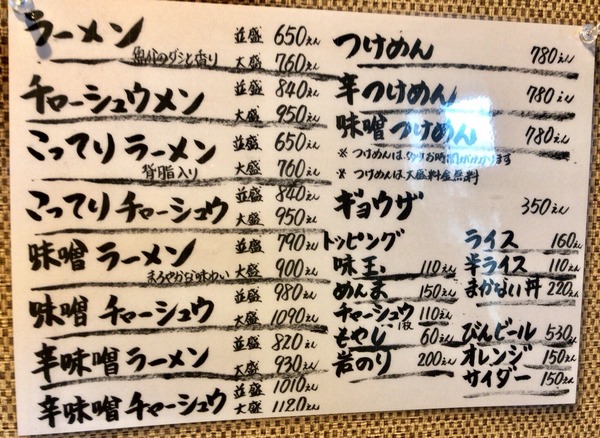 ラーメン 並盛 650えん
魚介のダシと香り 大盛 760えん
チャーシュウメン 並盛 840えん
大盛 950えん
こってりラーメン 並盛 650えん
背脂入り 大盛 760えん
こってりチャーシュウ 並盛 840えん
大盛 950えん
味噌ラーメン 並盛 790えん
まろやかな味わい 大盛 900えん
味噌チャーシュウ 並盛 980えん
大盛 1090えん
辛味噌ラーメン 並盛 820えん
大盛 930えん
辛味噌チャーシュウ 並盛 1010えん
大盛 1120えん
つけめん 780えん
辛つけめん 780えん
味噌つけめん 780えん
※ つけめんは お時間がかかります
※ つけめんは大盛料金無料
ギョウザ 350えん
トッピング
味玉 110えん
めんま 150えん
チャーシュウ1枚 110えん
もやし 60えん
岩のり 200えん
ライス 160えん
半ライス 110えん
まかない丼 220えん
びんビール 530えん
オレンジ 150えん
サイダー 150えん